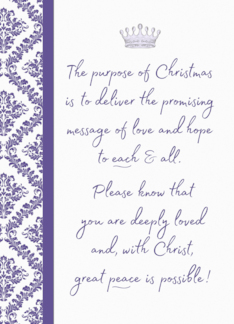 The purpose of Christmas
is to deliver the promising
message of love and hope
to each & all.
Please know that
you are deeply loved
and, with Christ,
great peace is possible!